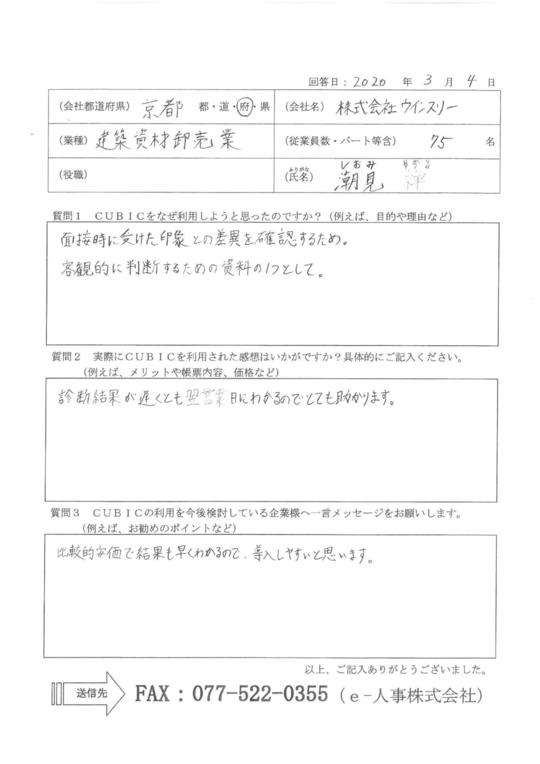 回答日：2020 年 3 月 4 日
(会社都道府県) 京都 都・道・府・県 (会社名) 株式会社ウインスリー
(業種) 建築資材卸売業 (従業員数・パート等含) 75 名
(役職) (氏名) ふりがな しおみ 潮見
質問１ ＣＵＢＩＣをなぜ利用しようと思ったのですか？（例えば、目的や理由など）
面接時に受けた印象との差異を確認するため。
客観的に判断するための資料の1つとして。
質問２ 実際にＣＵＢＩＣを利用された感想はいかがですか？具体的にご記入ください。
（例えば、メリットや帳票内容、価格など）
診断結果が遅くとも翌営業日にわかるのでとても助かります。
質問３ ＣＵＢＩＣの利用を今後検討している企業様へ一言メッセージをお願いします。
（例えば、お勧めのポイントなど）
比較的安価で結果も早くわかるので、導入しやすいと思います。
以上、ご記入ありがとうございました。
送信先 FAX：077-522-0355（ｅ-人事株式会社）